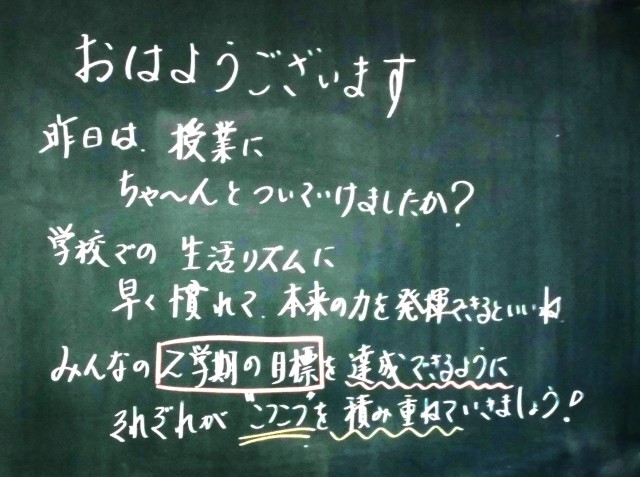 おはようございます
昨日は、授業に
ちゃ〜んとついていけましたか?
学校での 生活リズムに
早く慣れて、本来の力を発揮できるといいね
みんなの2学期の目標を達成できるように
それぞれが"コツコツ"を積み重ねていきましょう!